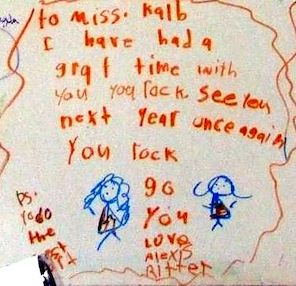 to miss. kalb
I have had a
grat time with
you you rock see you
next year once again
You rock
go
You
Love
Alexis
Ritter
Ps.
You do
the